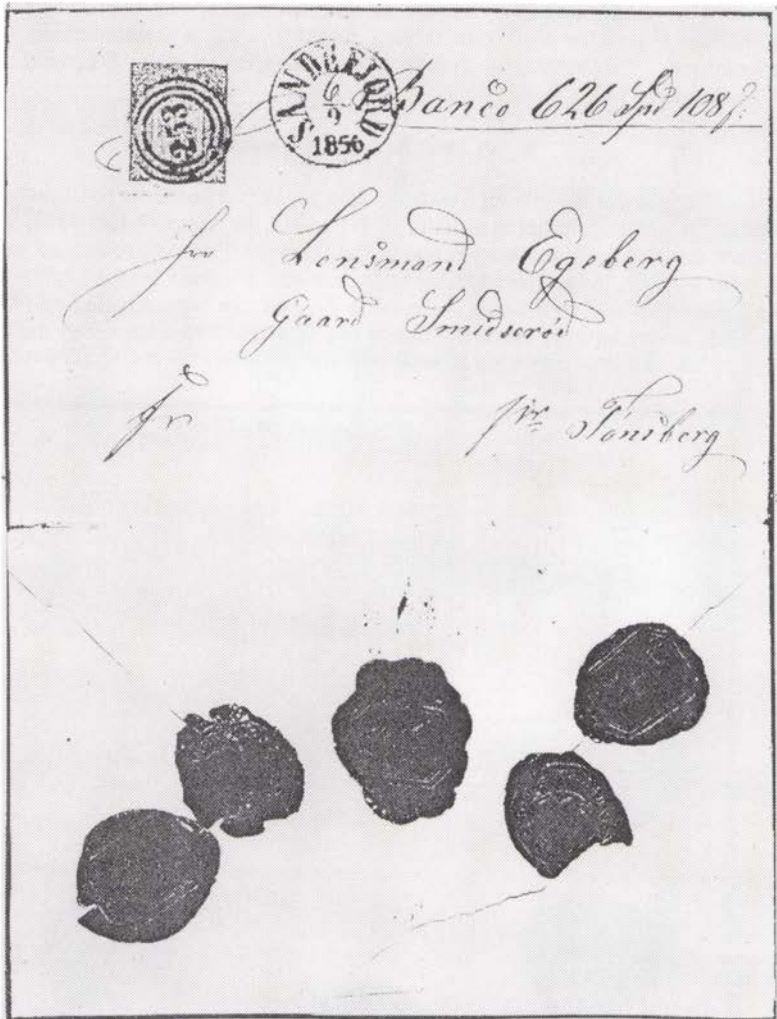 253
SANDEFJORD
6
9
1856
Banco 626 Spd 108 ß
Hr Lensmand Egeberg
Gaard Smidsröd
Fr
pr Tönsberg